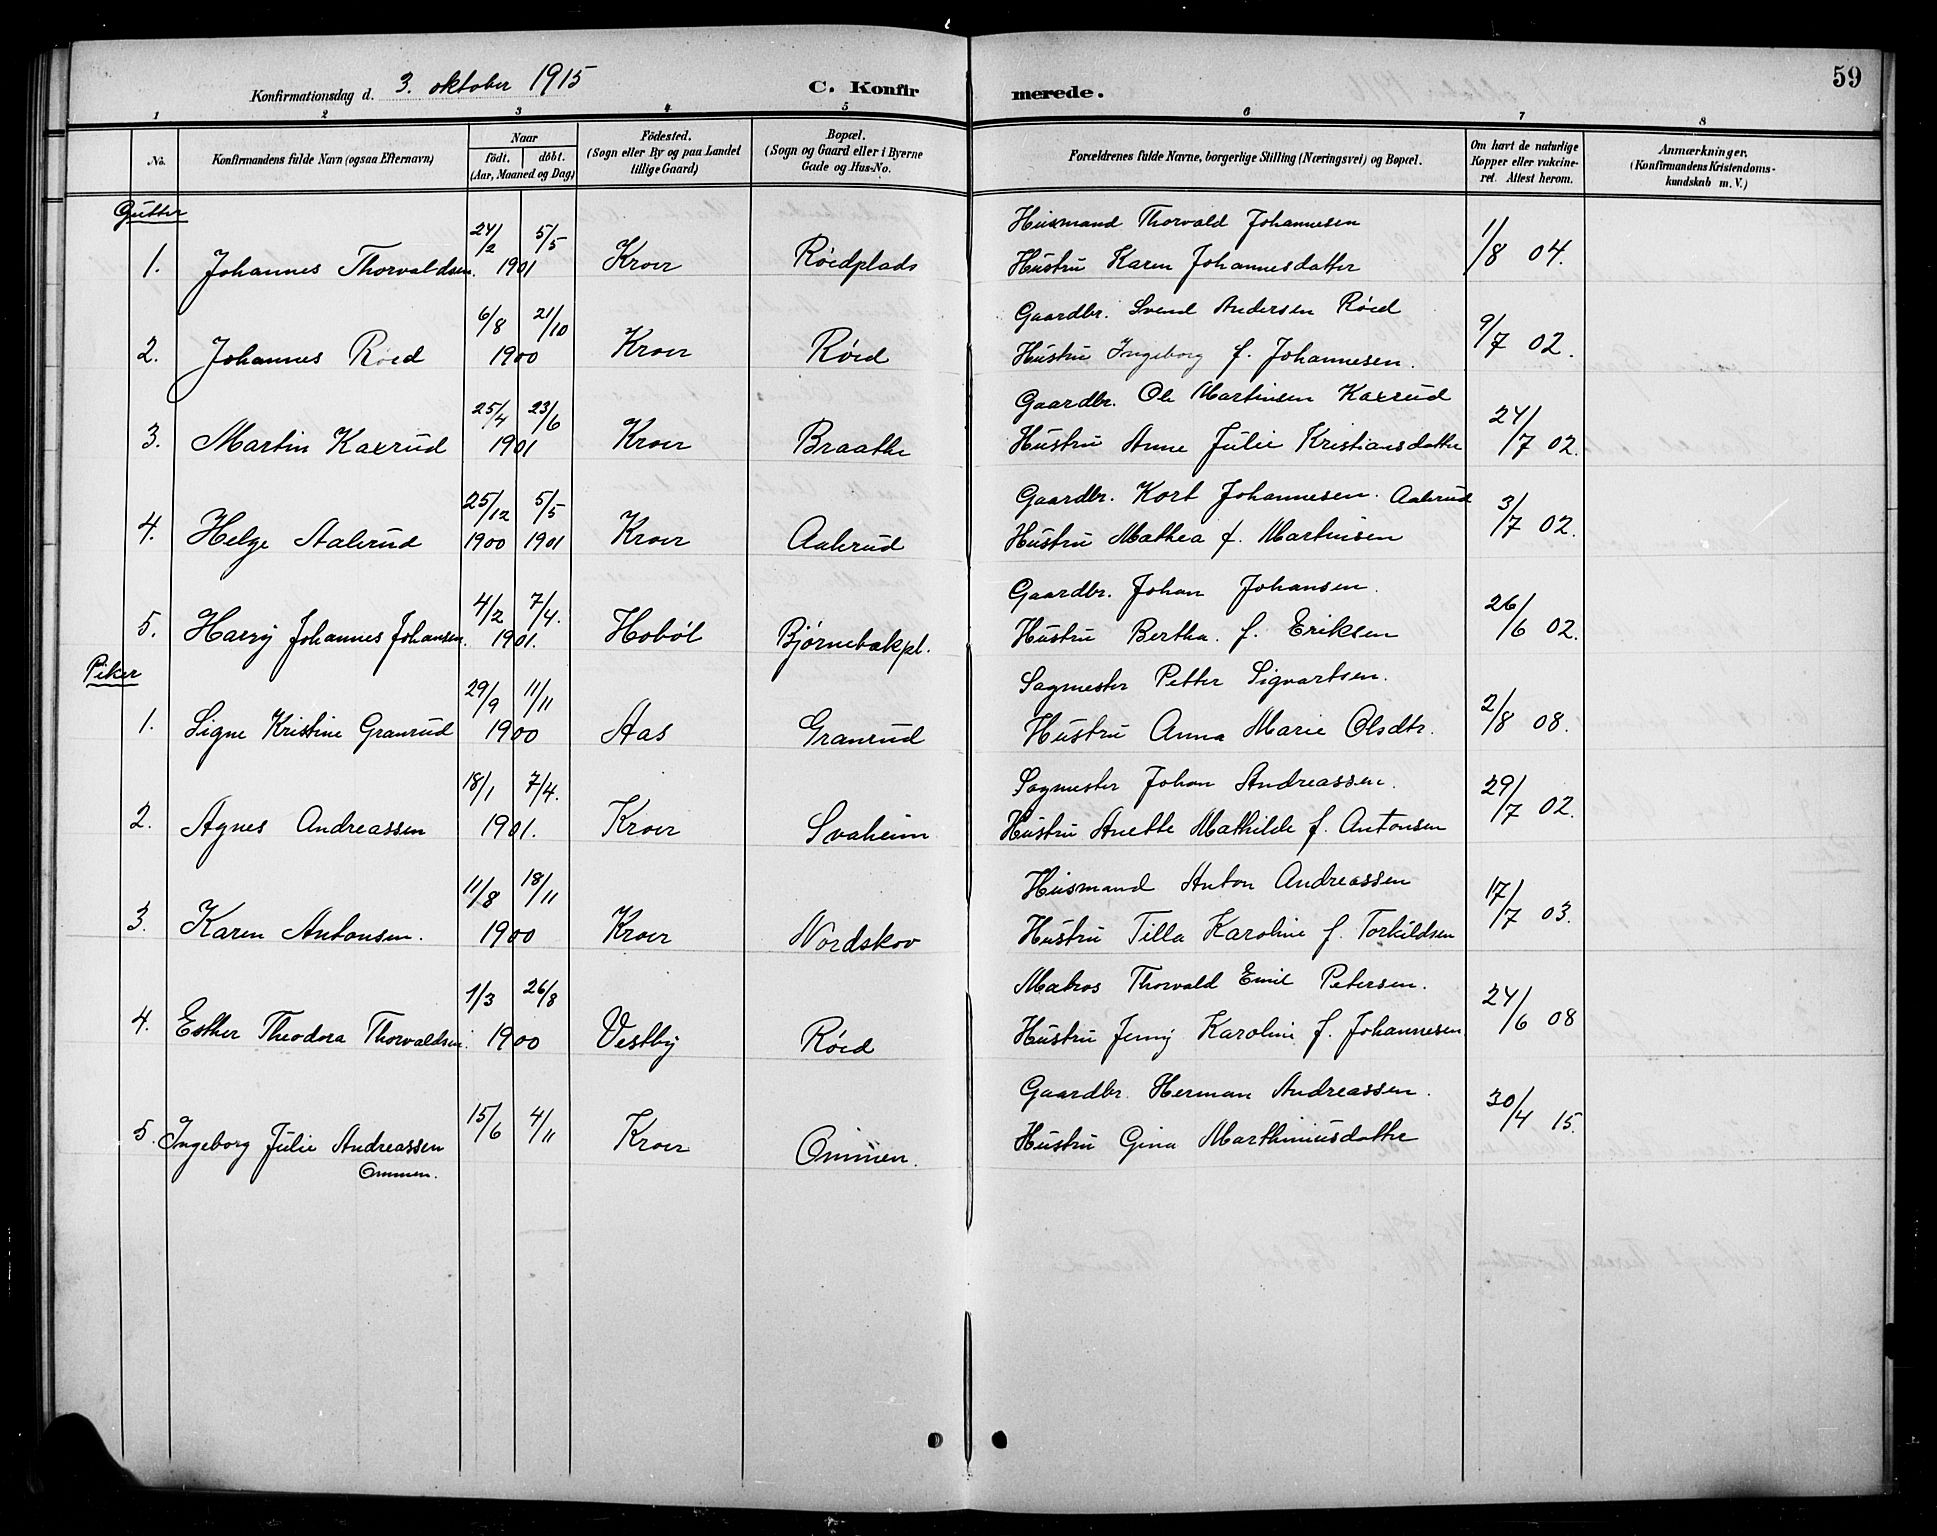 59
Konfirmationsdag d. 3. oktober 1915 C. Konfirmerede.
1 2 3 4 5 6 7 8
No. Konfirmandens fulde Navn (ogsaa Efternavn) Naar födt. döbt. (Aar, Maaned og Dag) Födested. (Sogn eller By og paa Landet tillige Gaard) Bopæl. (Sogn og Gaard eller i Byerne Gade og Hus-No. Forældrenes fulde Navne, borgerlige Stilling (Næringsvei) og Bopæl. Om havt de naturlige Kopper eller vakcineret. Attest herom. Anmærkninger. (Konfirmandens Kristendomskundskab m. V.)
Gutter
24/2 5/5 Husmand Thorvald Johannesen
1. Johannes Thorvaldsen. 1901 Kroer Röedplads Hustru Karen Johannesdatter 1/8 04.
6/8 21/10 Gaardbr. Svend Andersen Röed
2. Johannes Röed 1900 Kroer Röed Hustru Ingeborg f. Johannesen. 9/7 02.
25/4 23/6 Gaardbr. Ole Martinsen Kaxrud
3. Martin Kaxrud 1901 Kroer Braathe Hustru Anne Julie Kristiansdatter 24/7 02.
25/12 5/5 Gaardbr. Kort Johannesen. Aakrud
4. Helge Aakrud 1900 1901 Kroer Aakrud Hustru Mathea f. Martinsen 3/7 02.
4/2 7/4. Gaardbr. Johan Johansen.
5. Harry Johannes Johansen. 1901. Hobøl Bjørnebækpl. Hustru Bertha. f. Eriksen 26/6 02.
Piker
29/9 11/11 Sagmester Petter Sigvartsen.
1. Signe Kristine Granrud 1900 Aas Granrud Hustru Anna Marie Olsdtr. 2/8 08.
18/1 7/4. Sagmester Johan Andreassen.
2. Agnes Andreassen 1901. Kroer Svaheim Hustru Anette Mathilde f. Antonsen 29/7 02.
11/8 18/11 Husmand Anton Andreassen
3. Karen Antonsen. 1900 Kroer Nordskov Hustru Tilla Karoline f. Torkildsen 17/7 03.
1/3 26/8 Matros Thorvald Emil Petersen.
4. Esther Theodora Thorvaldsen. 1900 Vestby Röed Hustru Jenny Karoline f. Johannesen 24/6 08
15/6 4/11 Gaardbr. Herman Andreassen.
5. Ingeborg Julie Andreassen Kroer Ommen. Hustru Gina Marthinusdatter 30/4 15.
Ommen.